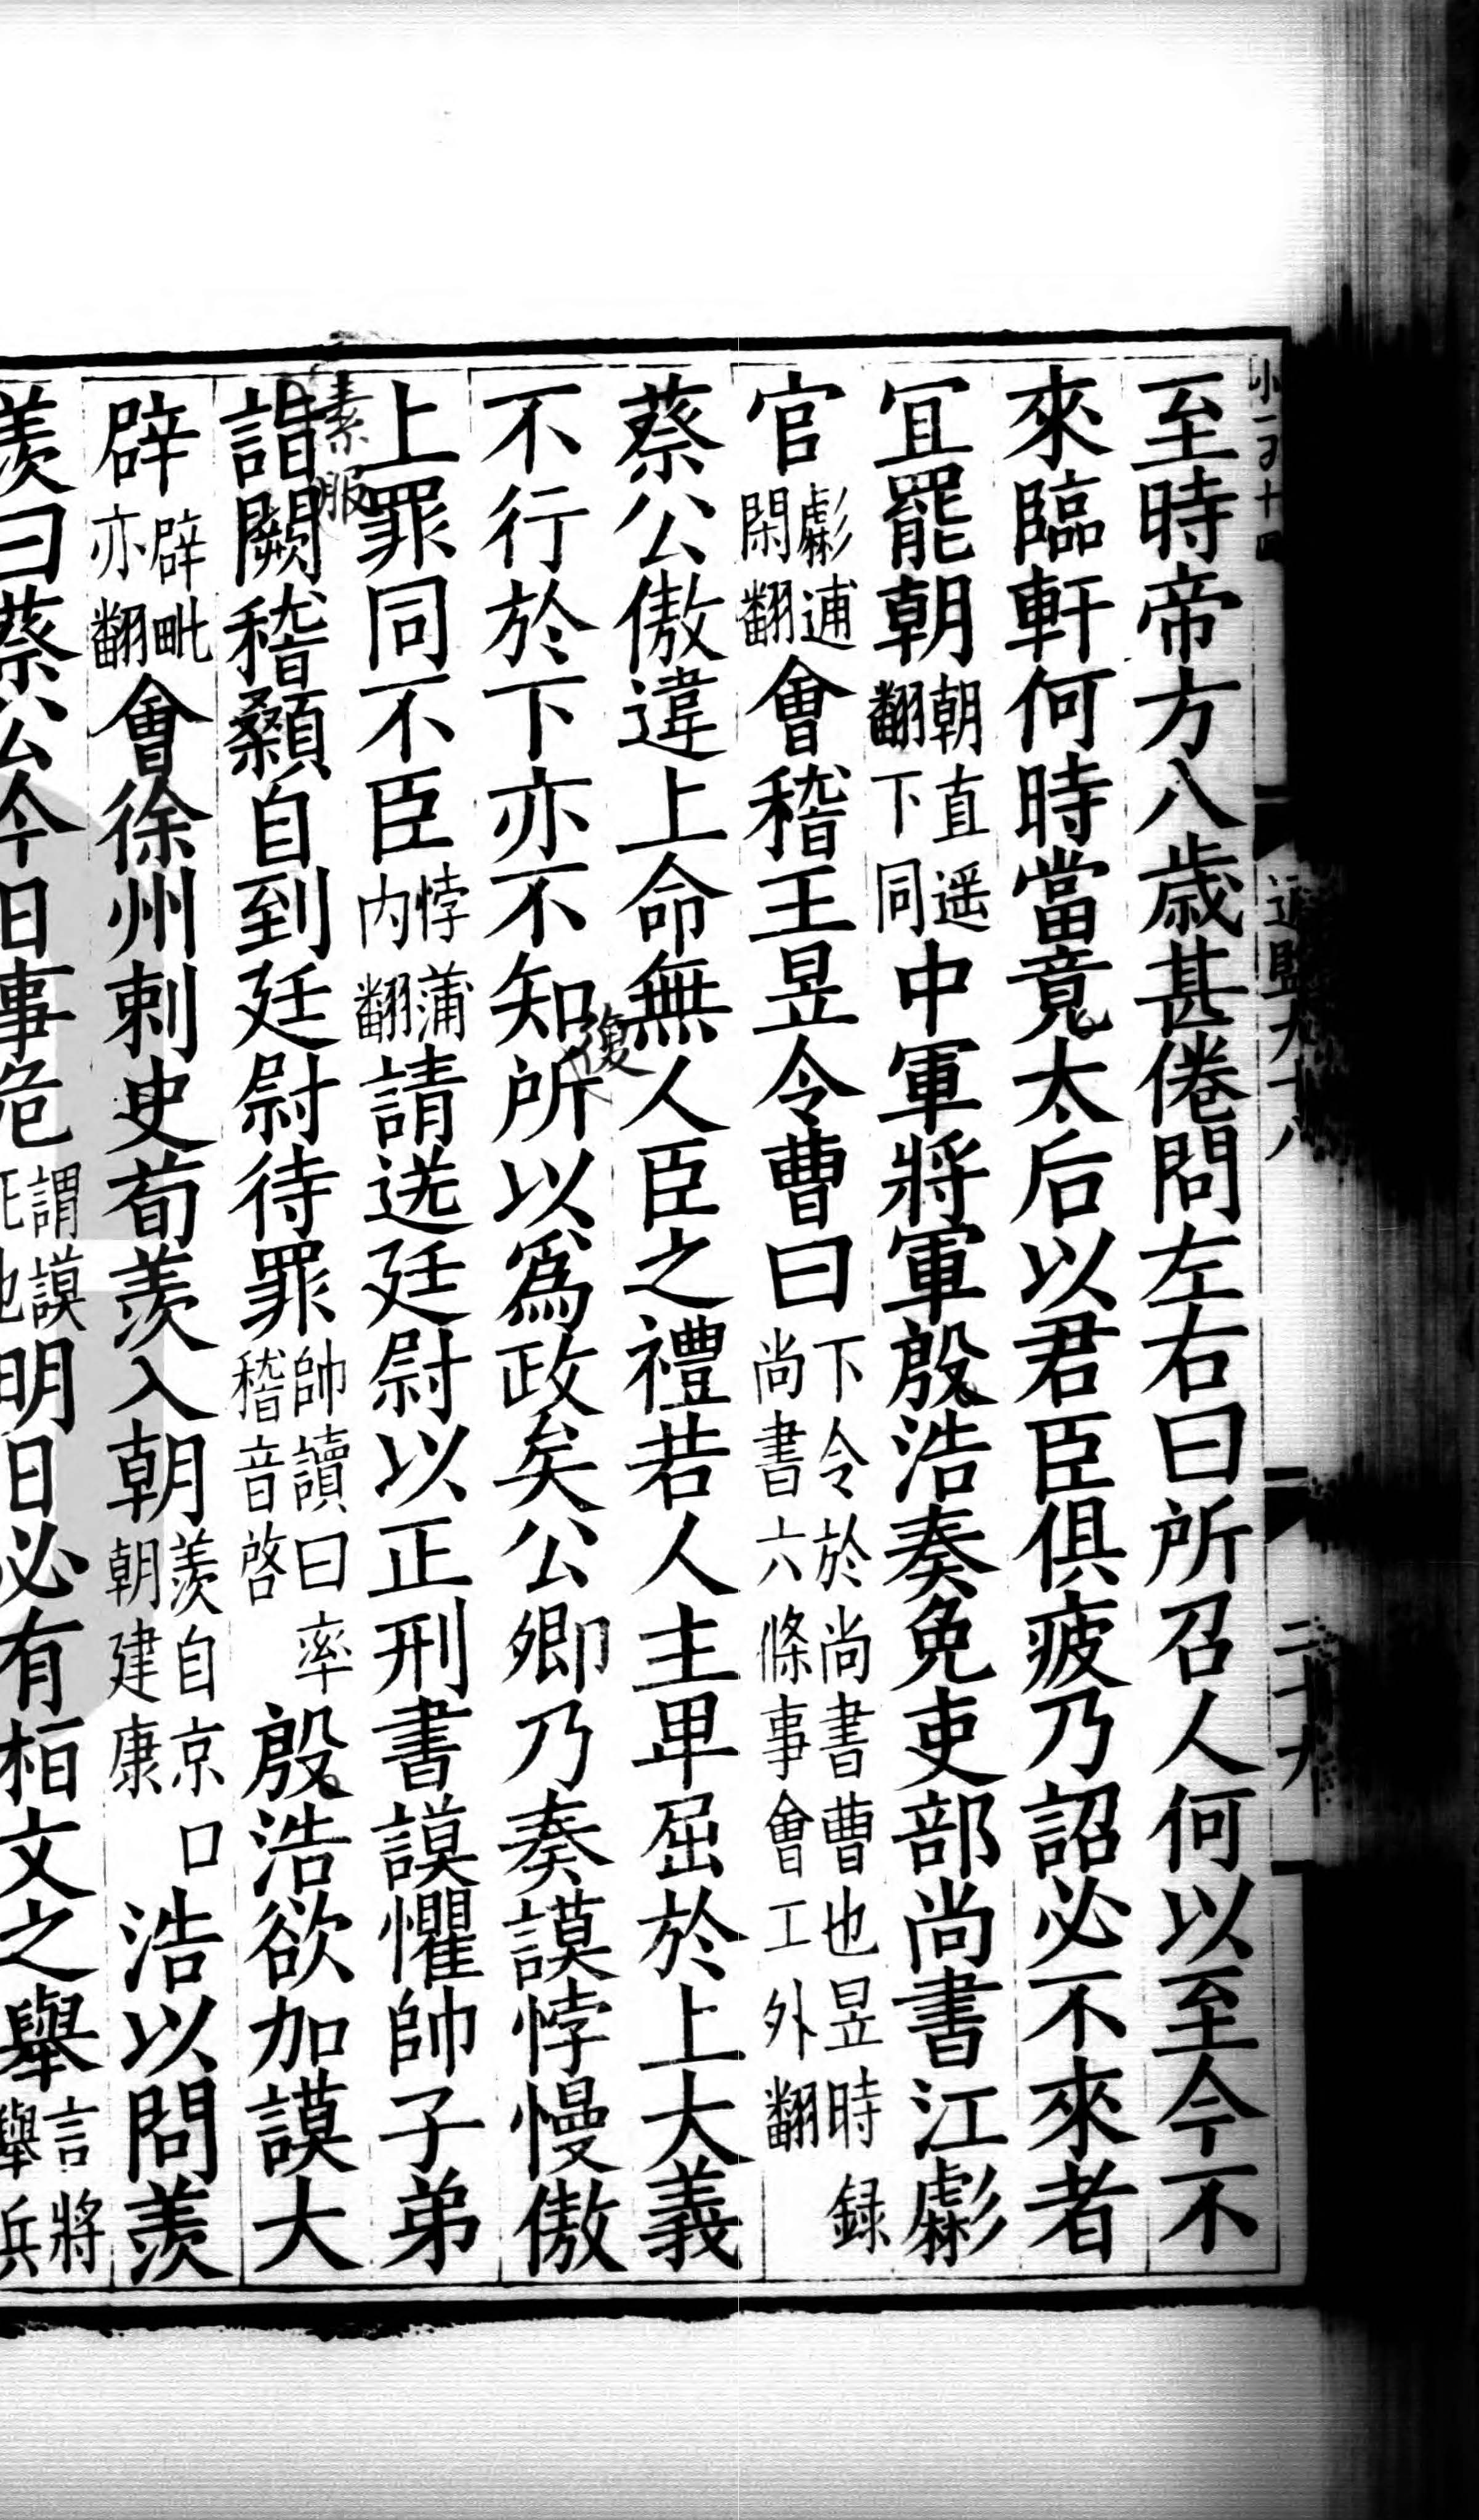 小一百十四
通鑑九十八
二十九
至時帝方八歲甚倦問左右曰所召人何以至今不
來臨軒何時當竟太后以君臣俱疲乃詔必不來者
宜罷朝朝直遥翻下同中軍將軍殷浩奏免吏部尚書江虨
官虨逋閑翻會稽王昱令曹曰下令於尚書曹也昱時録尚書六條事會工外翻
蔡公傲違上命無人臣之禮若人主卑屈於上大義
不行於下亦不知所以爲政矣公卿乃奏謨悖慢傲
復
上罪同不臣悖蒲内翻請送廷尉以正刑書謨懼帥子弟
素服
詣闕稽顙自到廷尉待罪帥讀曰率稽音啓殷浩欲加謨大
辟辟毗亦翻會徐州刺史荀羨入朝羨自京口朝建康浩以問羨
羨曰蔡公今日事危謂謨死也明日必有桓文之舉言將舉兵